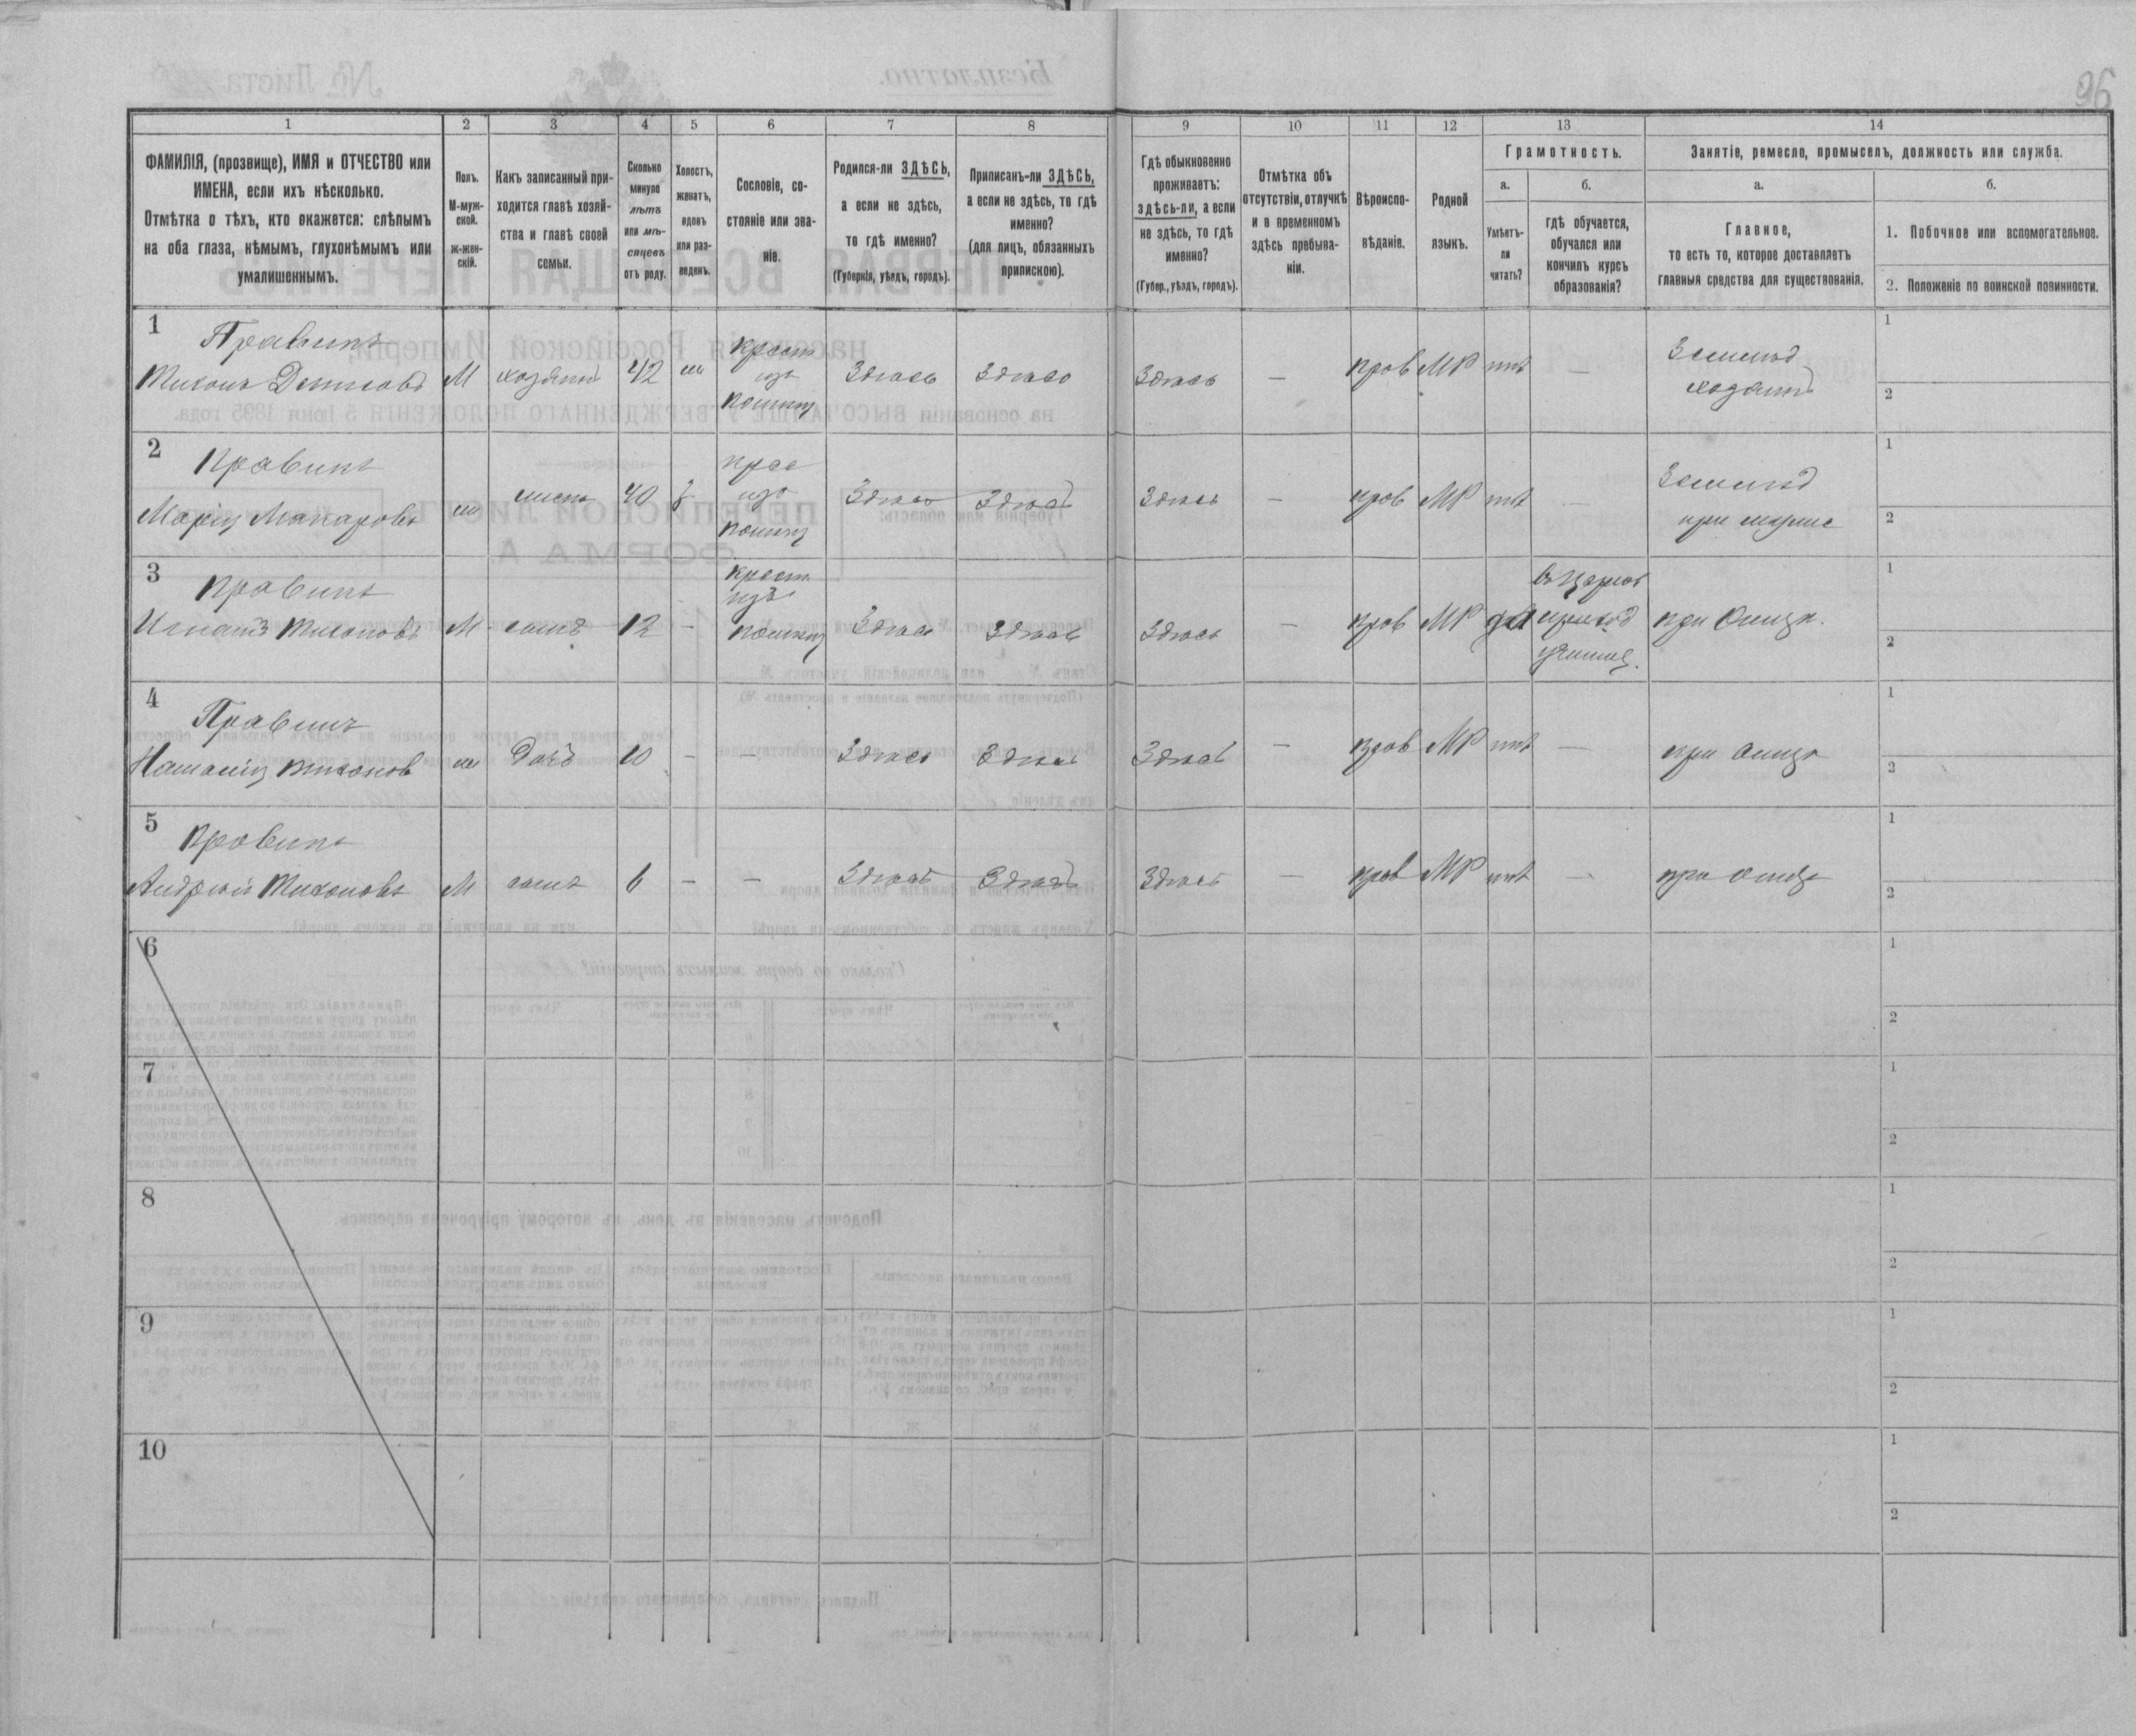 96
1
2
3
4
5
6
7
8
9
10
11
12
13
14
ФАМИЛІЯ, (прозвище), ИМЯ и ОТЧЕСТВО или
ИМЕНА, если ихъ нѣсколько.
Отмѣтка о тѣхъ, кто окажется: слѣпымъ
на оба глаза, нѣмымъ, глухонѣмымъ или
умалишеннымъ.
Полъ.
М-муж-
ской.
ж-жен-
скій.
Какъ записанный при-
ходится главѣ хозяй-
ства и главѣ своей
семьи.
Сколько
минуло
лѣтъ
или мѣ-
сяцевъ
отъ роду.
Холостъ,
женатъ,
вдовъ
или раз-
веденъ.
Сословіе, со-
стояніе или зва-
ніе.
Родился-ли ЗДѢСЬ,
а если не здѣсь,
то гдѣ именно?
(Губернія, уѣздъ, городъ).
Приписанъ-ли ЗДѢСЬ,
а если не здѣсь, то гдѣ
именно?
(для лицъ, обязанныхъ
припискою).
Гдѣ обыкновенно
проживаетъ:
здѣсь-ли, а если
не здѣсь, то гдѣ
именно?
(Губер., уѣздъ, городъ).
Отмѣтка объ
отсутствіи, отлучкѣ
и о временномъ
здѣсь пребыва-
ніи.
Вѣроиспо-
вѣданіе.
Родной
языкъ.
Грамотность.
а.
Умѣетъ-
ли
читать?
б.
гдѣ обучается,
обучался или
кончилъ курсъ
образованія?
Занятіе, ремесло, промыселъ, должность или служба.
а.
Главное,
то есть то, которое доставляетъ
главныя средства для существованія.
б.
1. Побочное или вспомогательное.
2. Положеніе по воинской повинности.
1
Правикъ
Тихонъ Денисовъ М хозяинъ 42 ж
крест
изъ
Здѣсь Здѣсь Здѣсь — прав МР нѣт —
Земледѣл
хозяинъ
1
2
2
Правикъ
Марія Макарова ж жена 40 з
крес
изъ
Здѣсь Здѣсь Здѣсь — прав МР нѣт —
Земледѣл
при мужѣ
1
2
3
Правикъ
Игнатъ Тихоновъ М сынъ 12 -
крест
изъ
Здѣсь Здѣсь Здѣсь — прав МР да
въ церков
приход
училищ.
при отцѣ.
1
2
4
Правикъ
Наталія Тихонов ж дочь 10 - — Здѣсь Здѣсь Здѣсь — прав МР нѣт — при отцѣ
1
2
5
Правикъ
Андрей Тихоновъ М сынъ 6 - — Здѣсь Здѣсь Здѣсь — прав МР нѣт — при отцѣ
1
2
6
1
2
7
1
2
8
1
2
9
1
2
10
1
2